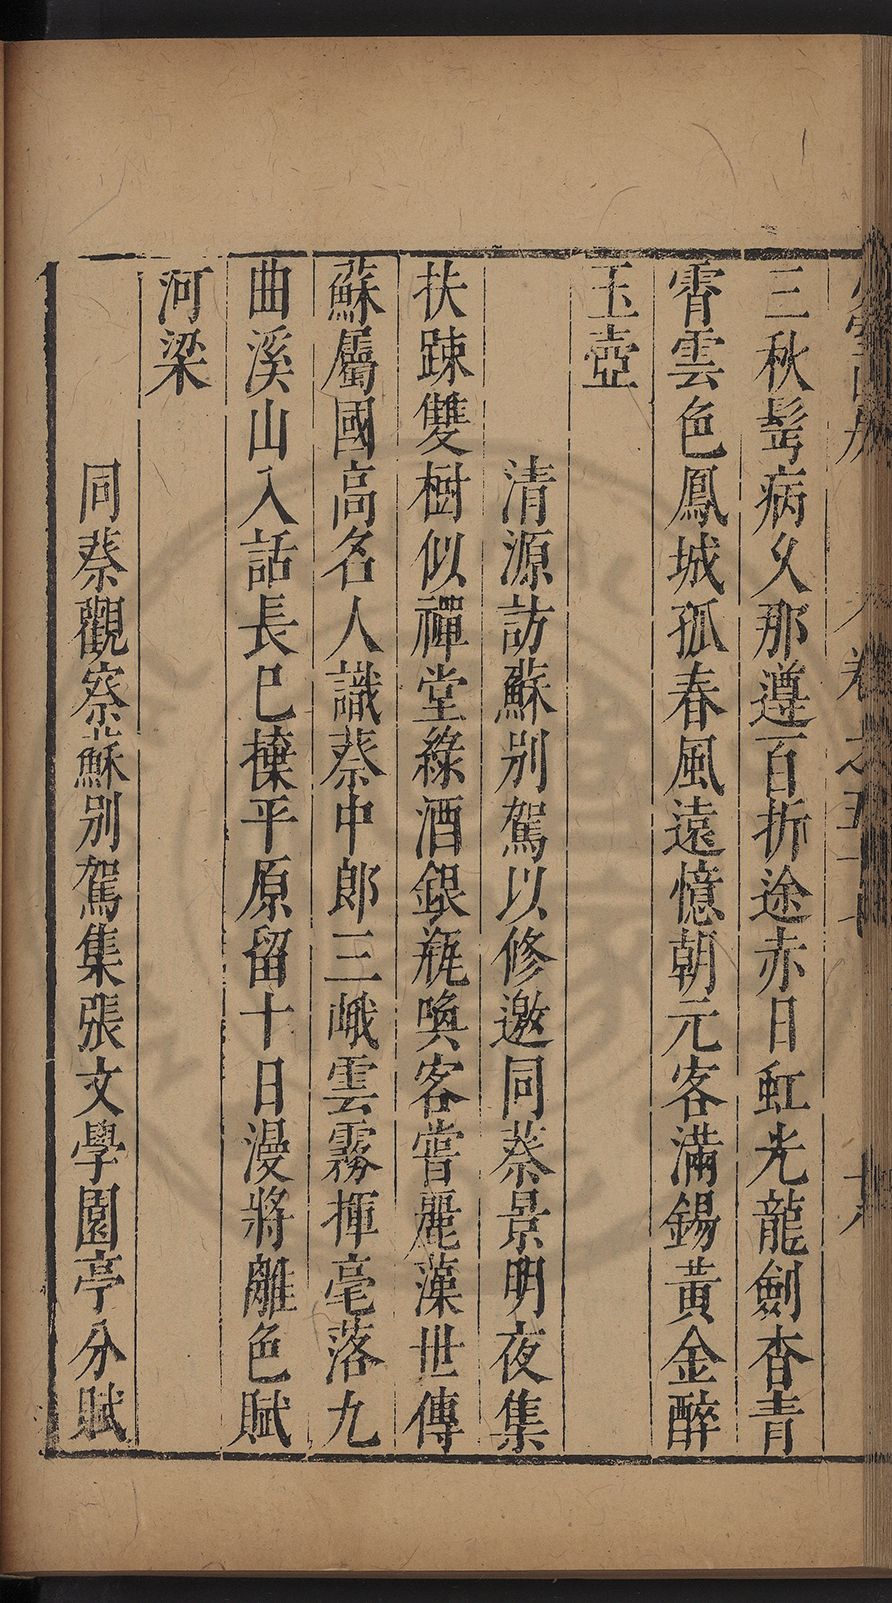 三秋髩病久那遵百折途赤日虹光龍劍杳青
霄雲色鳳城孤春風遠憶朝元客滿錫黃金醉
玉壺
清源訪蘇别駕以修邀同蔡景明夜集
扶踈雙樹似禪堂綠酒銀瓶喚客嘗麗藻世傳
蘇屬國高名人識蔡中郎三峨雲霧揮毫落九
曲溪山入話長已㩀平原留十日漫將離色賦
河梁
同蔡觀察蘇别駕集張文學園亭分賦
卷之五十